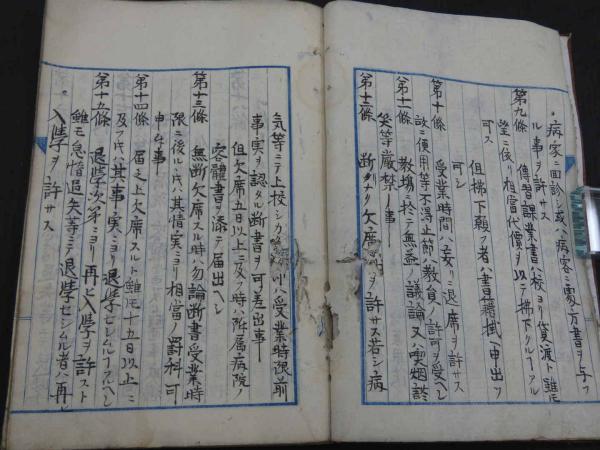 病家ニ回診シ或ハ病客ニ処方書ヲ与フ
ル事ヲ許サス
第九條 傳習課業書ハ校ヨリ貸渡ト雖モ
望ニ依リ相當代價ヲ以テ拂下クルヿアル
可ス
但拂下願フ者ハ書籍掛ヘ申出ツ
可シ
第十條 受業時間ハ妄リニ退席ヲ許サス
故ニ便用等不得止節ハ教員ノ許可ヲ受ヘシ
第十一條 教場ニ於テ無益ノ議論又ハ喫烟談
笑等厳禁ノ事
第十二條 断リナク欠席スルヲ許サス若シ病
気等ニテ上校シカタキ時ハ受業時限前
事実ヲ認タル断書ヲ可差出事
但欠席五日以上ニ及フ時ハ附属病院ノ
容體書ヲ添テ届出ヘシ
第十三條 無断欠席スル時ハ勿論断書受業時
限ニ後ルヽ片ハ其情実ニヨリ相當ノ罰科可
申付事
第十四條 届之上欠席スルト雖モ十五日以上ニ
及フ片ハ其事実ニヨリ退学セシムルヿアルヘシ
第十五條 退学次第ニヨリ再ヒ入学ヲ許スト
雖モ怠惰過失等ニテ退学セシムル者ハ再ヒ
入学ヲ許サス